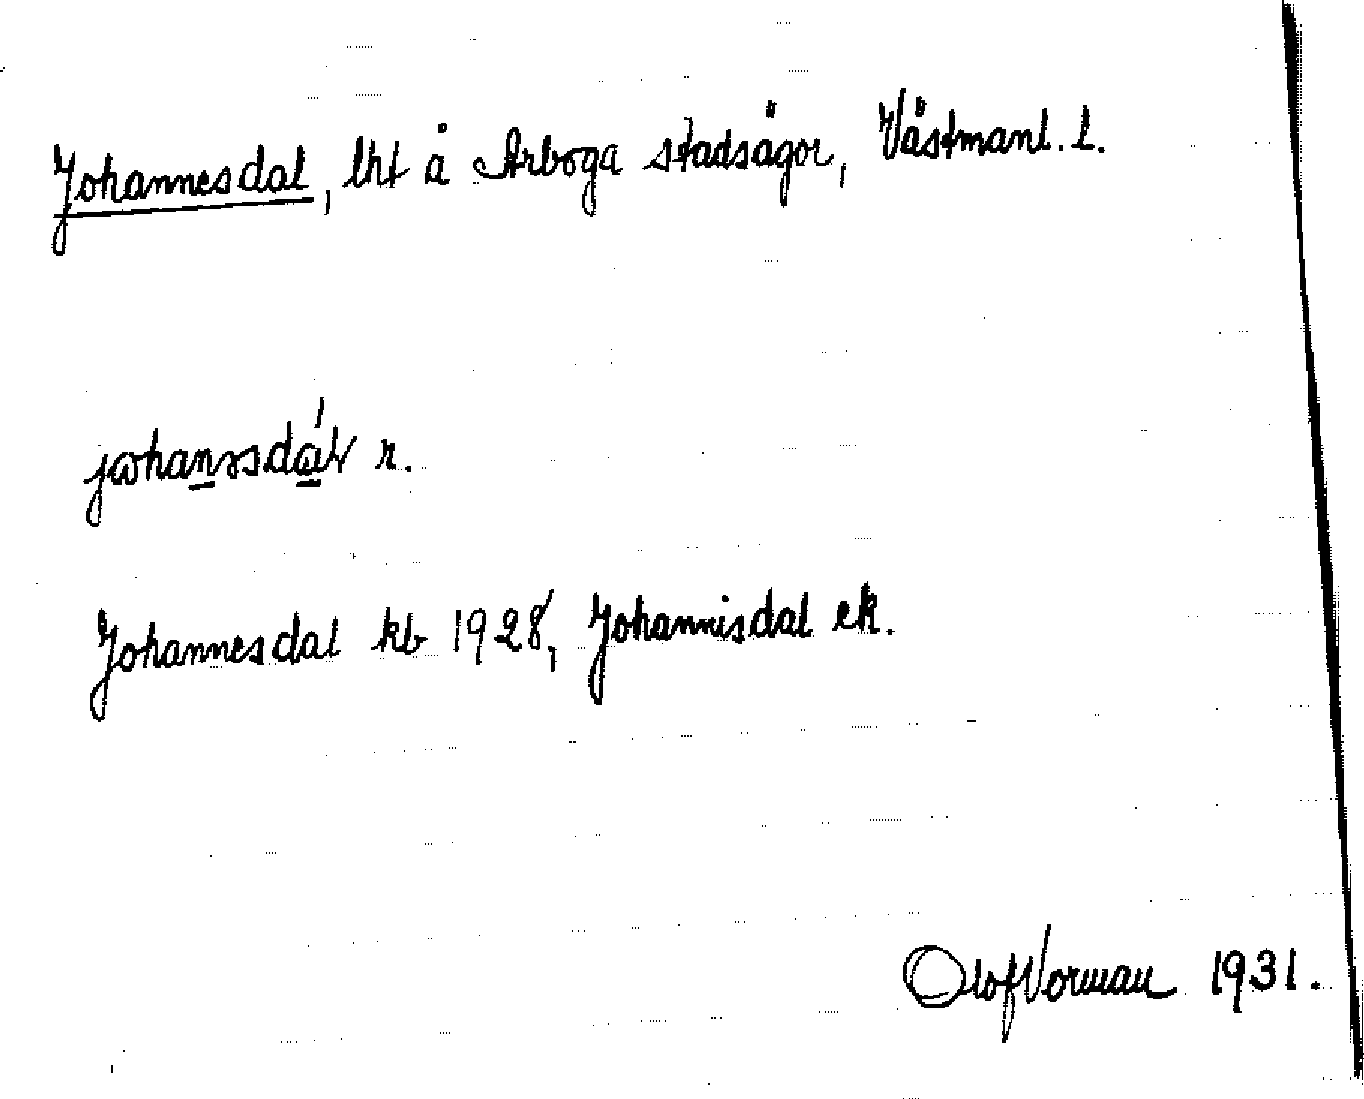 Johannesdal, lht å Arboga stadsägor, Västmanl. l.
r.
Johannesdal kb 1928, Johannisdal ek.
Olof Vorman 1931.